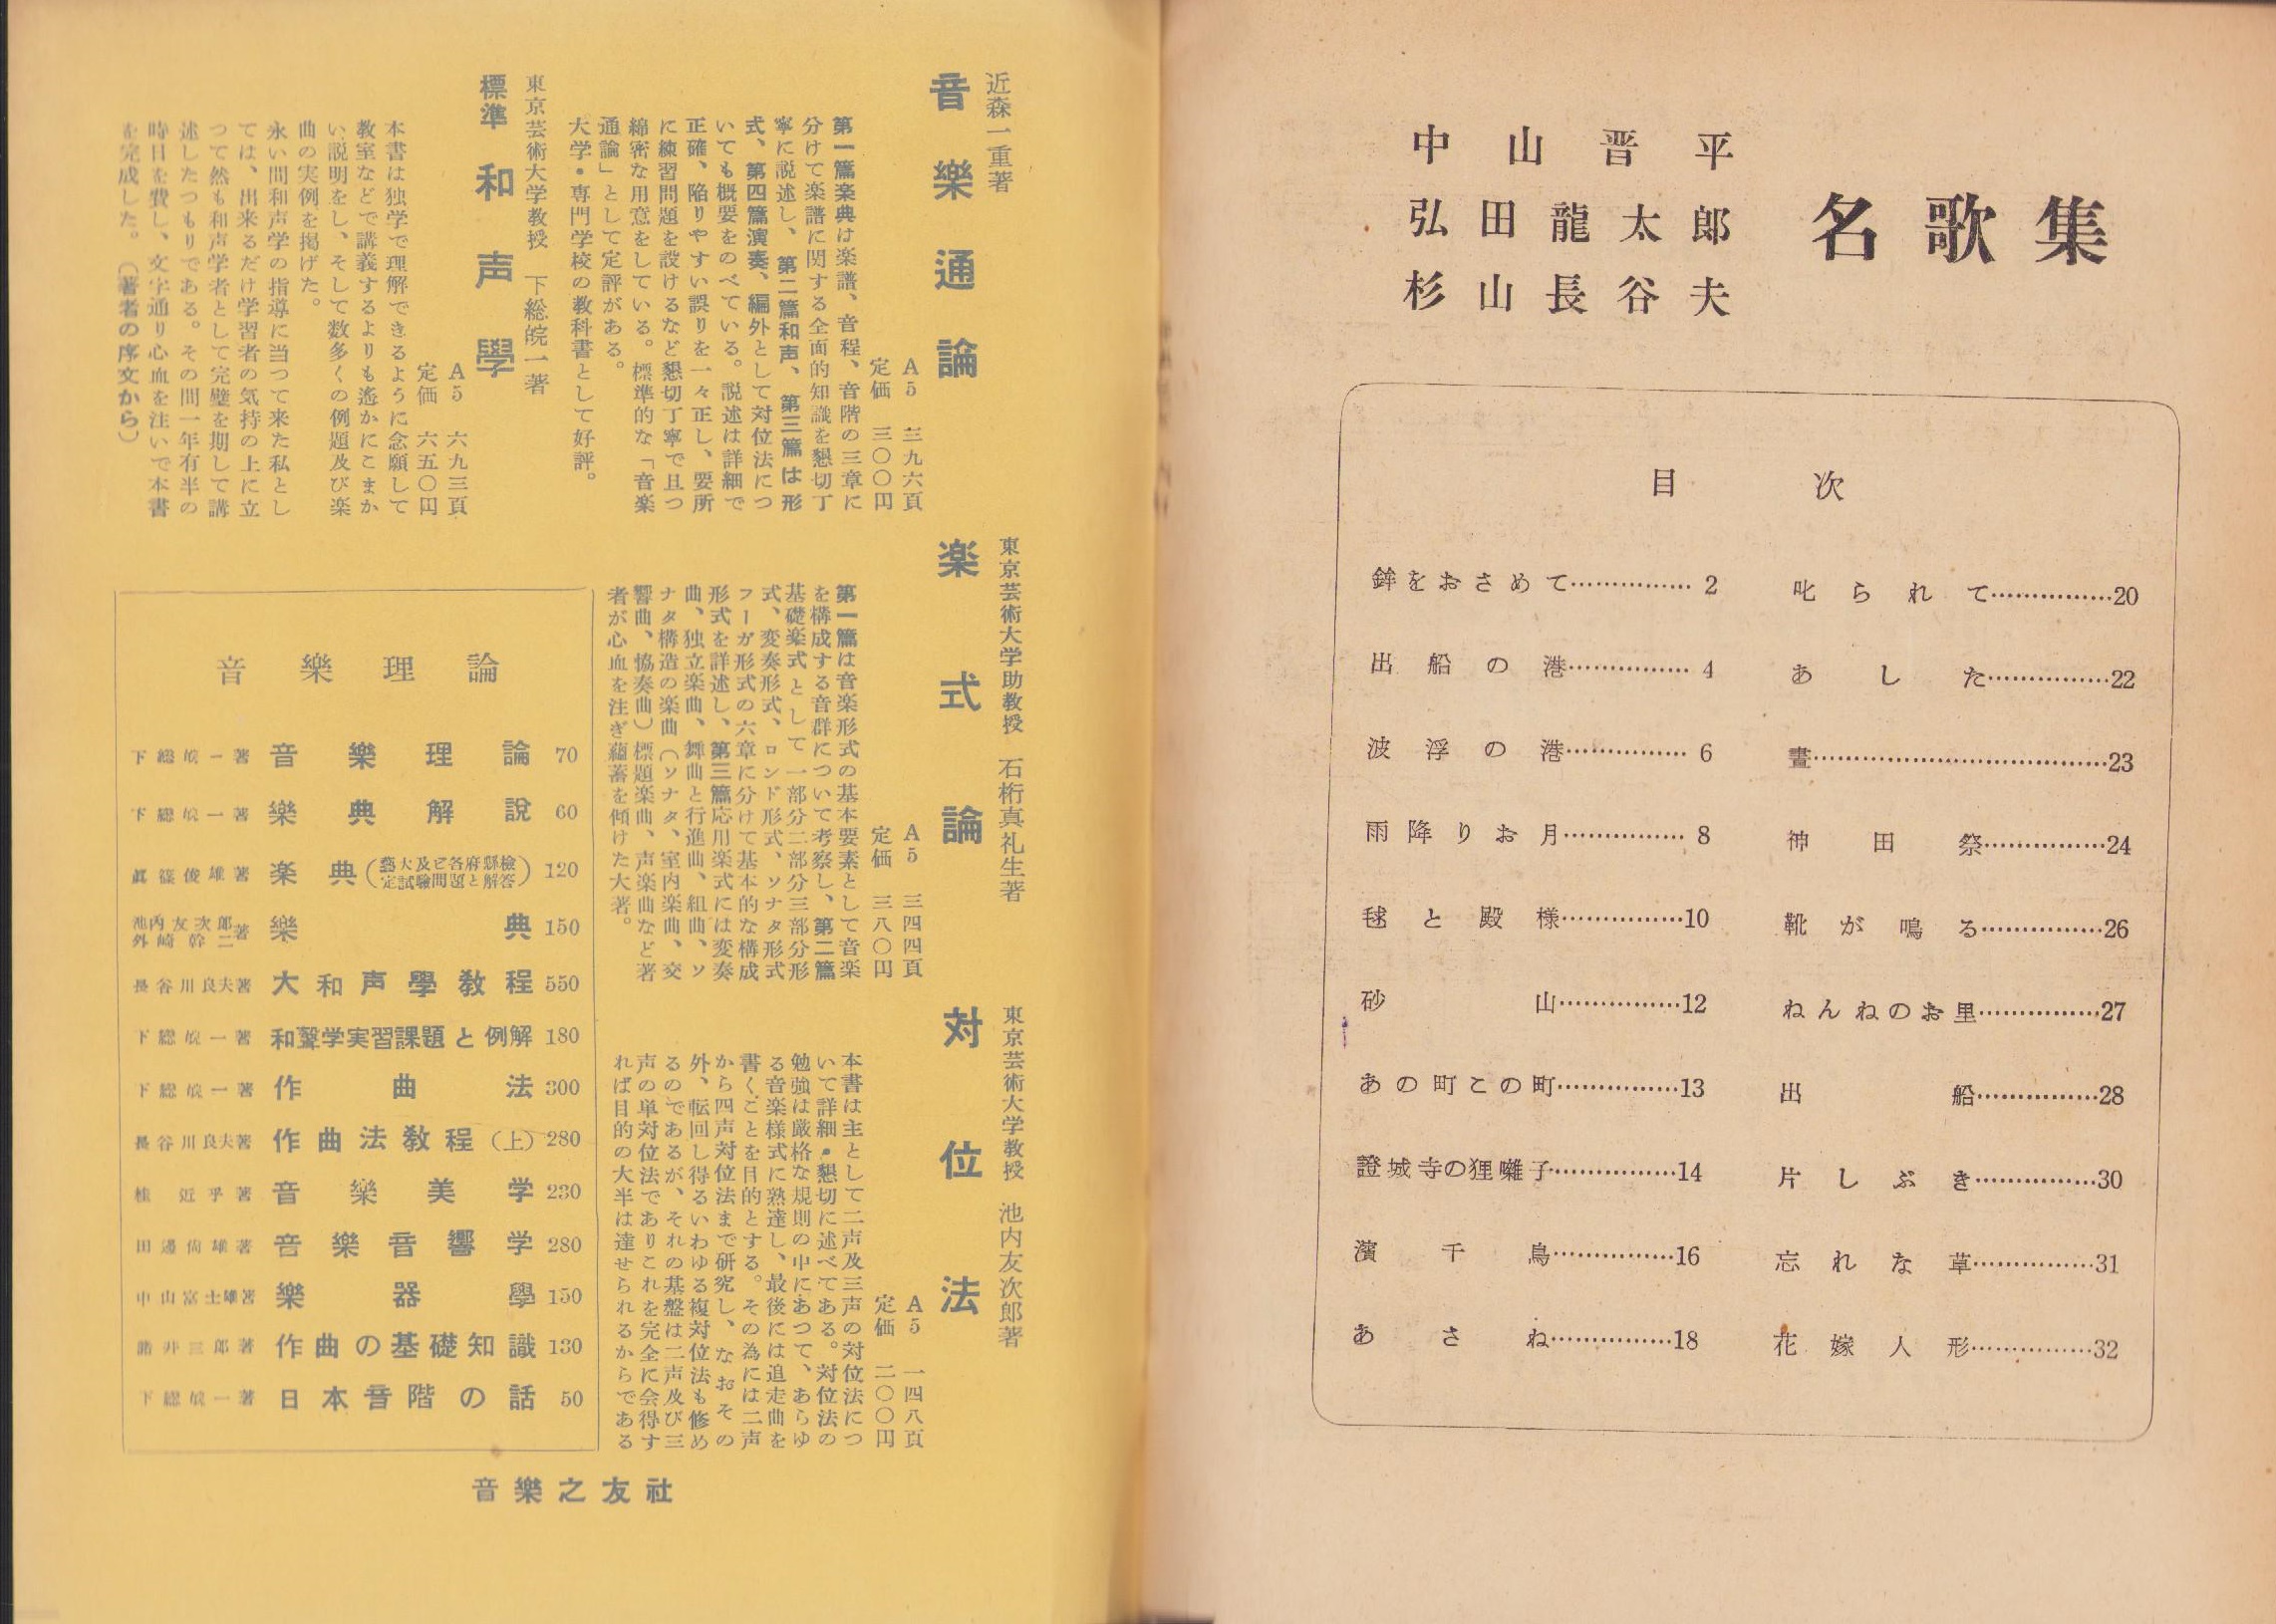 近森一重著
音樂通論
A5 三九六頁
定価 三〇〇円
第一篇楽典は楽譜、音程、音階の三章に
分けて楽譜に関する全面的知識を懇切丁
寧に説述し、第二篇和声、第三篇は形
式、第四篇演奏、編外として対位法につ
いても概要をのべている。説述は詳細で
正確、陥りやすい誤りを一々正し、要所
に練習問題を設けるなど懇切丁寧で且つ
綿密な用意をしている。標準的な「音楽
通論」として定評がある。
大学・専門学校の教科書として好評。
東京芸術大学教授 下総皖一著
標準和声學
A5 六九三頁
定価 六五〇円
本書は独学で理解できるように念願して
教室などで講義するよりも遙かにこまか
い説明をし、そして数多くの例題及び楽
曲の実例を掲げた。
永い間和声学の指導に当つて来た私とし
ては、出来るだけ学習者の気持の上に立
つて然も和声学者として完璧を期して講
述したつもりである。その間一年有半の
時日を費し、文字通り心血を注いで本書
を完成した。（著者の序文から）
東京芸術大学助教授 石桁真礼生著
楽式論
A5 三四四頁
定価 三八〇円
第一篇は音楽形式の基本要素として音楽
を構成する音群について考察し、第二篇
基礎楽式として一部分二部分三部分形
式、変奏形式、ロンド形式、ソナタ形式
フーガ形式の六章に分けて基本的な構成
形式を詳述し、第三篇応用楽式には変奏
曲、独立楽曲、舞曲と行進曲、組曲、ソ
ナタ構造の楽曲（ソナタ、室内楽曲、交
響曲、協奏曲）標題楽曲、声楽曲など著
者が心血を注ぎ蘊蓄を傾けた大著。
東京芸術大学教授 池内友次郎著
対位法
A5 一四八頁
定価 二〇〇円
本書は主として二声及三声の対位法につ
いて詳細・懇切に述べてある。対位法の
勉強は厳格な規則の中にあつて、あらゆ
る音楽様式に熟達し、最後には追走曲を
書くことを目的とする。その為には二声
から四声対位法まで研究し、なおその
外、転回し得るいわゆる複対位法も修め
るのであるが、それの基盤は二声及び三
声の単対位法でありこれを完全に会得す
れば目的の大半は達せられるからである
音樂理論
下総皖一著 音樂理論 70
下総皖一著 樂典解說 60
眞篠俊雄著 楽典（藝大及び各府縣檢定試驗問題と解答） 120
池内友次郎 外崎幹二 著 樂典 150
長谷川良夫著 大和声學教程 550
下総皖一著 和聲学実習課題と例解 180
下総皖一著 作曲法 300
長谷川良夫著 作曲法教程（上） 280
桂近乎著 音樂美学 230
田邊尚雄著 音樂音響学 280
中山富士雄著 樂器學 150
諸井三郎著 作曲の基礎知識 130
下総皖一著 日本音階の話 50
音樂之友社
中山晋平
弘田龍太郎
杉山長谷夫
名歌集
目次
鉾をおさめて…………… 2
出船の港…………… 4
波浮の港…………… 6
雨降りお月…………… 8
毬と殿様……………10
砂山……………12
あの町この町……………13
證城寺の狸囃子……………14
濱千鳥……………16
あさね……………18
叱られて……………20
あした……………22
晝……………………………23
神田祭……………24
靴が鳴る……………26
ねんねのお里……………27
出船……………28
片しぶき……………30
忘れな草……………31
花嫁人形……………32